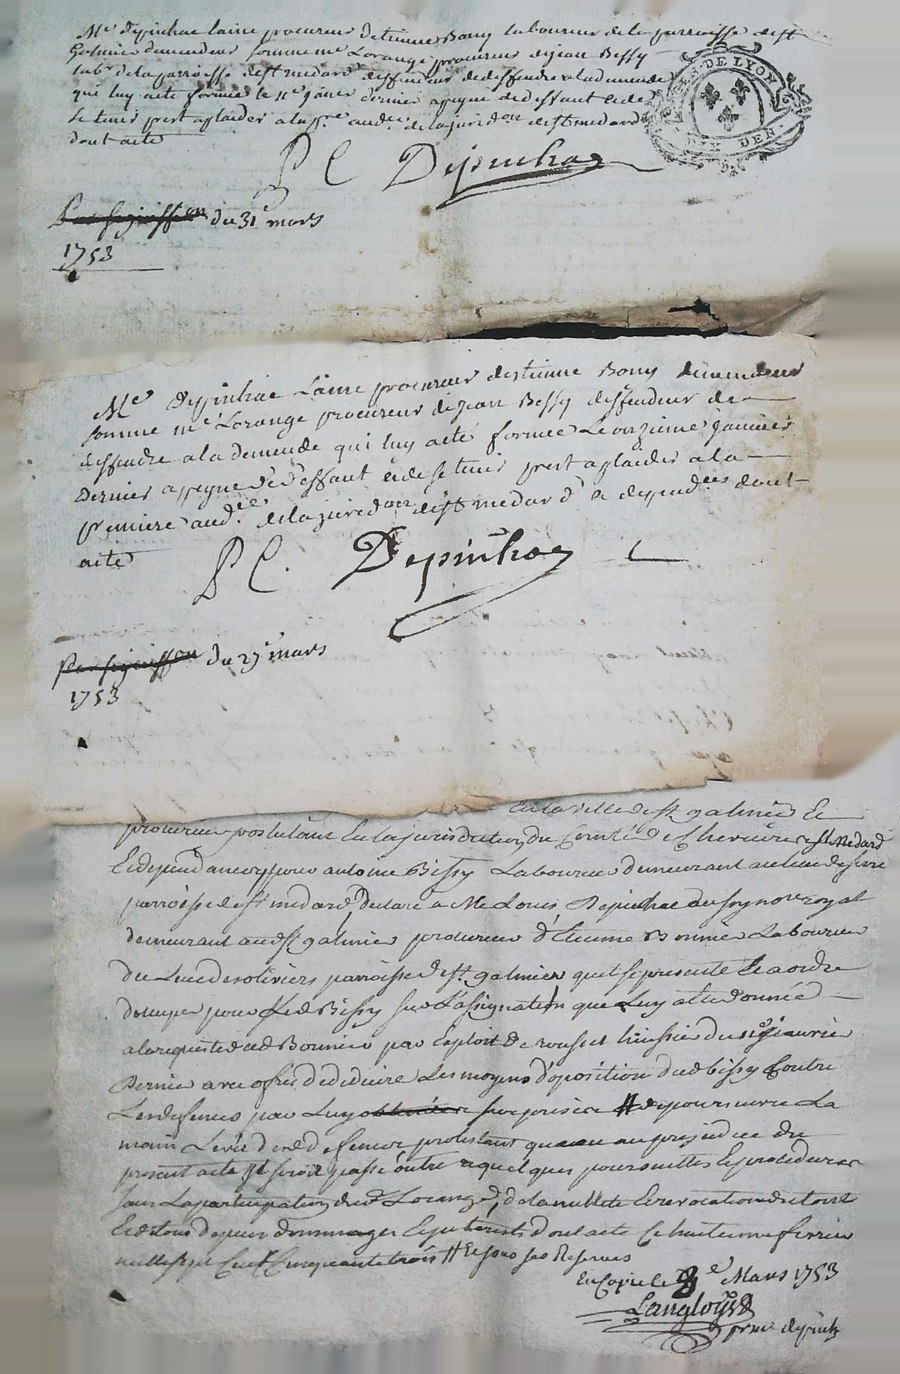 Me depinhac laine procureur detienne Bony laboureur de la parroisse de st
Galmier demendeur somme me Lorange procureur de jean Bessy
labr de la parroisse de st medard deffendeur de deffendre a la demende
qui luy a eté formée le 11e janier dernier a peyne de deffaut et de
se tenir prest a plaider a la pre audce de la juridon de st medard
dont acte
GEN. DE LYON
DIX DEN.
P C Depinhac
Par signiffion du 31e mars
1753
Me depinhac Laine procureur destienne Bony demendeur
somme me Lorange procureur de jean Bessy deffendeur de
deffendre a la demende qui luy a eté formée Le onzieme janvier
dernier a peyne de deffaut et de se tenir prest a plaider a la
premiere audce de la juridon de st medard & dependces dont
acte
P C. Depinhac
Par signiffon du 27 mars
1753
en la ville de st galmier &
procureur postulant en la jurisdiction du Comté de Chevrieres st Medard
Et dependances pour antoine Bissy Laboureur demeurant au lieu de
parroisse de st medard, declare a Me Louis Depinhac aussy nore royal
demeurant aud st galmier procureur d'Etienne Bonnier Laboureur
du Lieu des oliviers parroisse de st galmier quil se presente et a ordre
doccuper pour led Bissy sur L'assignation que Luy a ete donnée
a la requeste dud Bonnier par Exploit de rousset huissier du janvier
Dernier avec ofres de deduire Les moyens d'oposition dud bissy Contre
Les defences par Luy obtenües # de poursuivre La
main Levée desd defences protestant que au prejudice du
present acte Il seroit passé outre a quelques poursuittes & procedures
sans La participation dud Lorange, de la nullité & revocation du tout
Et de tous depens dommages & interests dont acte Ce huitieme fevrier
mille sept Cent Cinquante trois # Et sous ses Reserves
En Copie le 8e Mars 1753
Langloys
pour depinhac